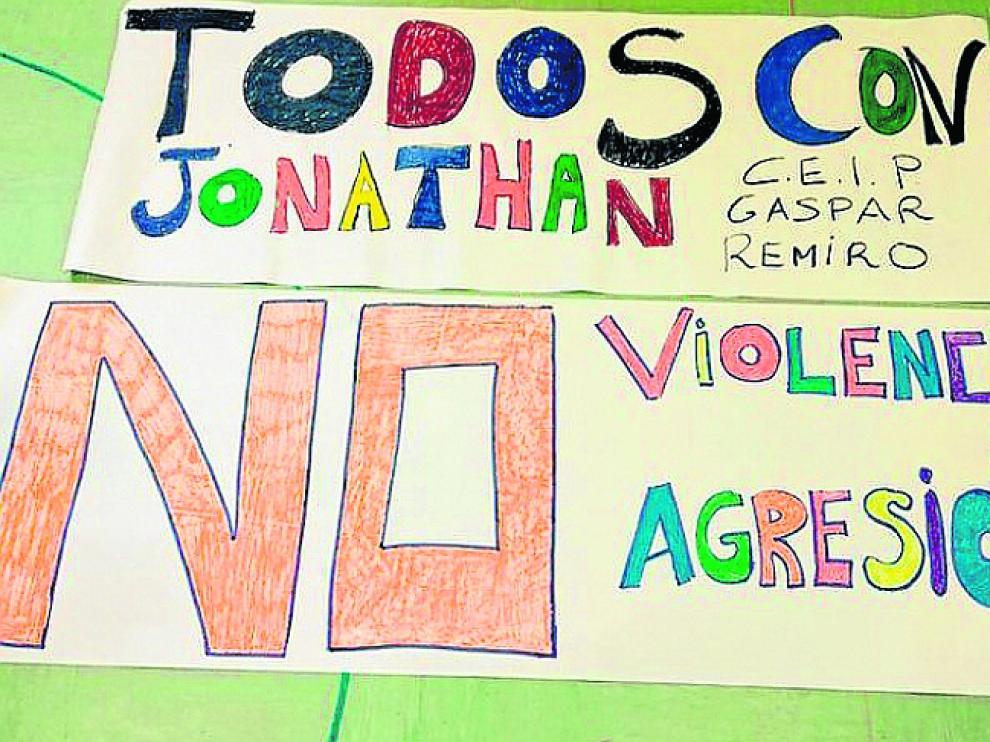 TODOS CON
JONATHAN
C.E.I.P.
GASPAR
REMIRO
NO
VIOLENC
AGRESIO